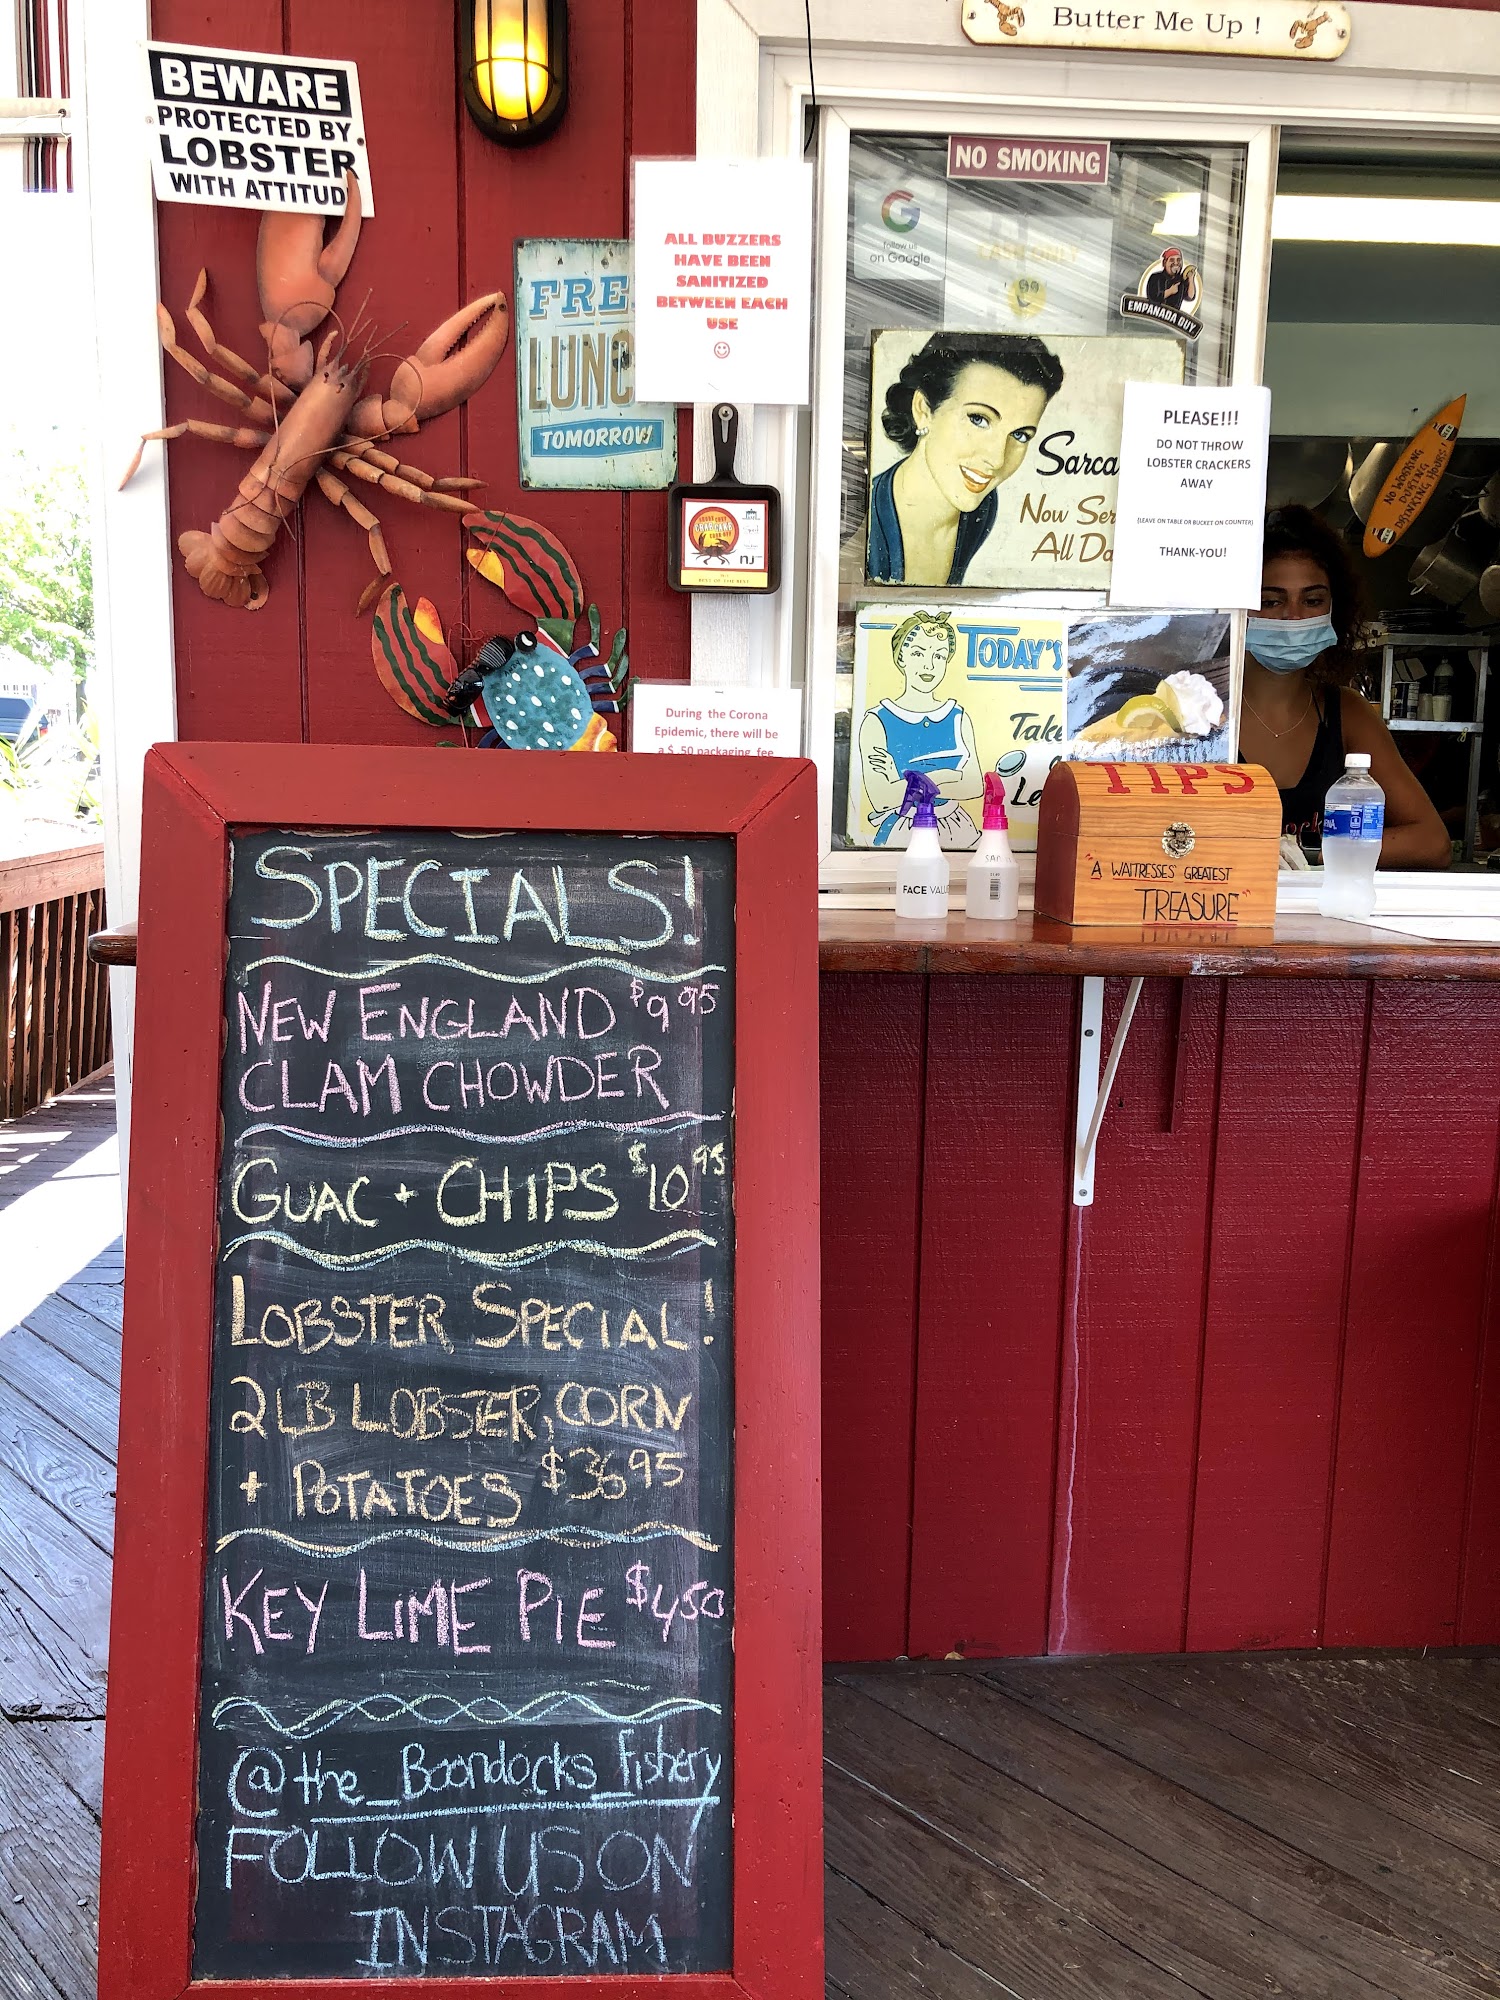 Butter Me Up !
BEWARE
PROTECTED BY
LOBSTER
WITH ATTITUD
NO SMOKING
follow us
on Google
CASH ONLY
EMPANADA GUY
ALL BUZZERS
HAVE BEEN
SANITIZED
BETWEEN EACH
USE
FRE
LUNC
TOMORROW
PLEASE!!!
DO NOT THROW
LOBSTER CRACKERS
AWAY
(LEAVE ON TABLE OR BUCKET ON COUNTER)
THANK-YOU!
Sarca
Now Ser
All Da
NO WORKING
DURING
DRINKING HOURS!
NJ
BEST OF THE BEST
TODAY'S
Take
Le
During the Corona
Epidemic, there will be
a $ .50 packaging fee
TIPS
"A WAITRESSES GREATEST
TREASURE"
FACE VALU
SPECIALS!
NEW ENGLAND $9.95
CLAM CHOWDER
GUAC + CHIPS $10.95
LOBSTER SPECIAL!
2LB LOBSTER, CORN
+ POTATOES $36.95
KEY LIME PIE $4.50
@the_Boondocks_fishery
FOLLOW US ON
INSTAGRAM